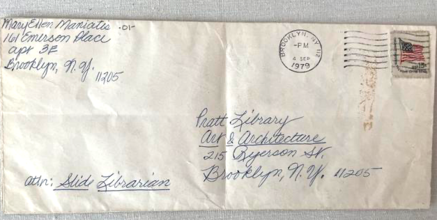 Mary Ellen Maniatis
161 Emerson Place
apt 3F
Brooklyn, N.Y.
11205
BROOKLYN, NY
PM
SEP
1979
Pratt Library
Art & Architecture
215 Ryerson St.
Brooklyn, N.Y. 11205
attn: Slide Librarian